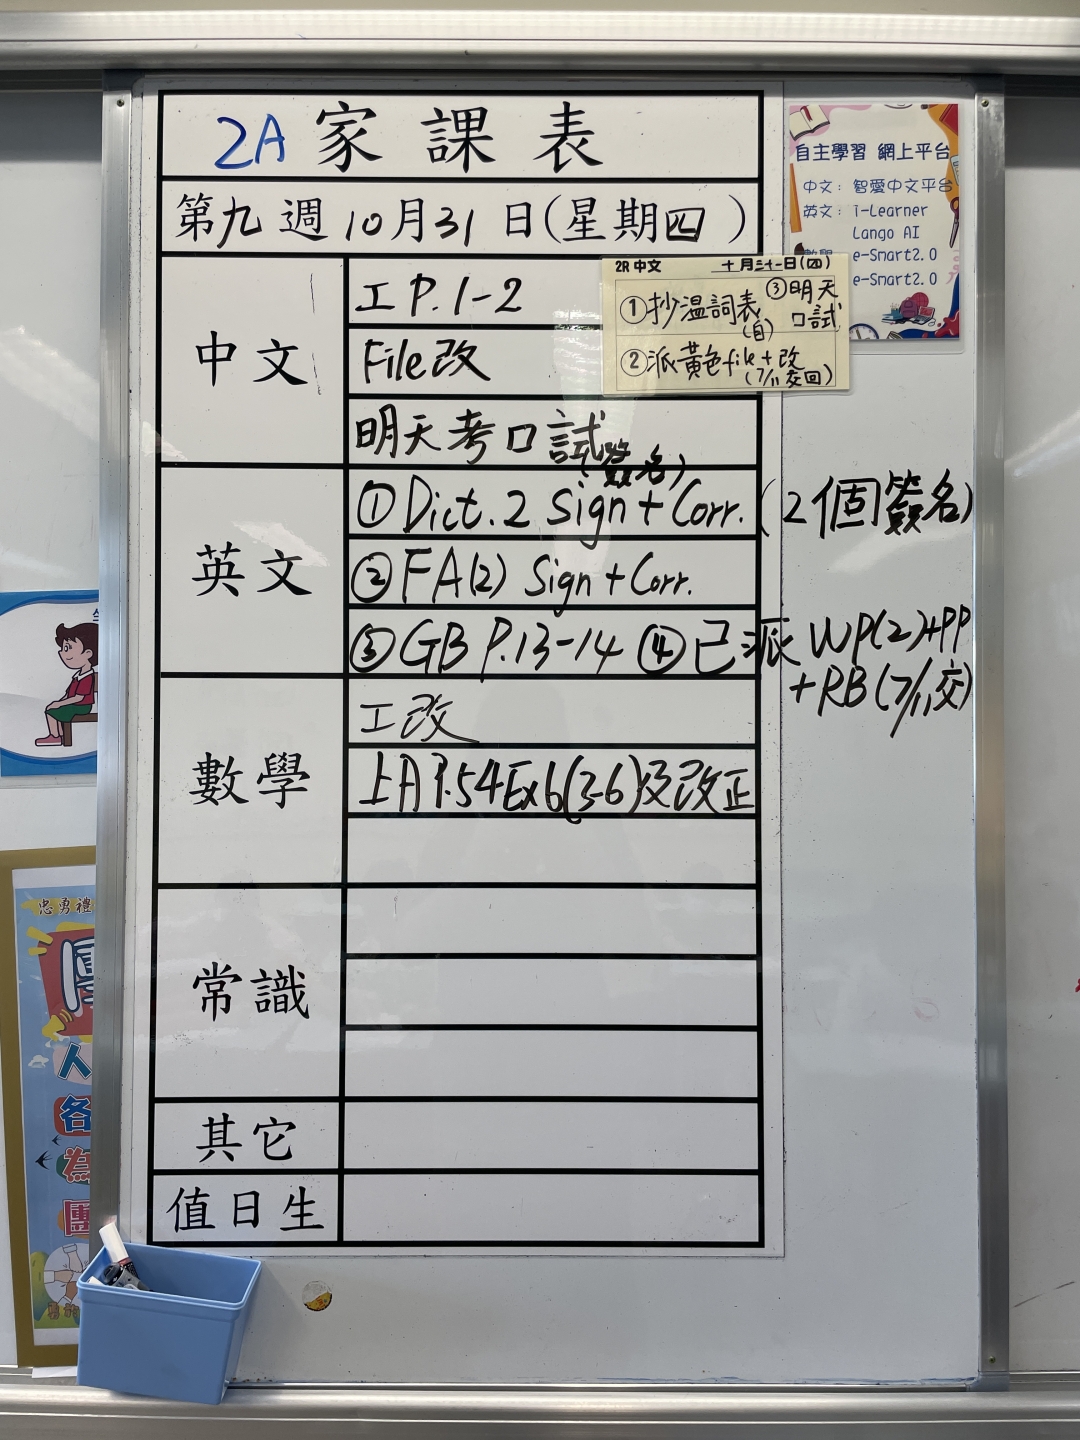 2A 家課表
第九週10月31日(星期四)
中文
工P.1-2
File改
明天考口試
(簽名)
2R中文 十月三十一日(四)
①抄溫詞表(自) ③明天口試
②派黃色file+改
(7/11交回)
自主學習 網上平台
中文: 智愛中文平台
英文: i-Learner
Lango AI
數學 e-Smart2.0
e-Smart2.0
英文
①Dict.2 Sign+Corr. (2個簽名)
②FA(2) Sign+Corr.
③GB P.13-14 ④已派 WP(2)+PP
+RB(7/11交)
數學
工改
上A P.54Ex6(3-6)及改正
常識
其它
值日生
忠勇禮
團
人
各
為
團